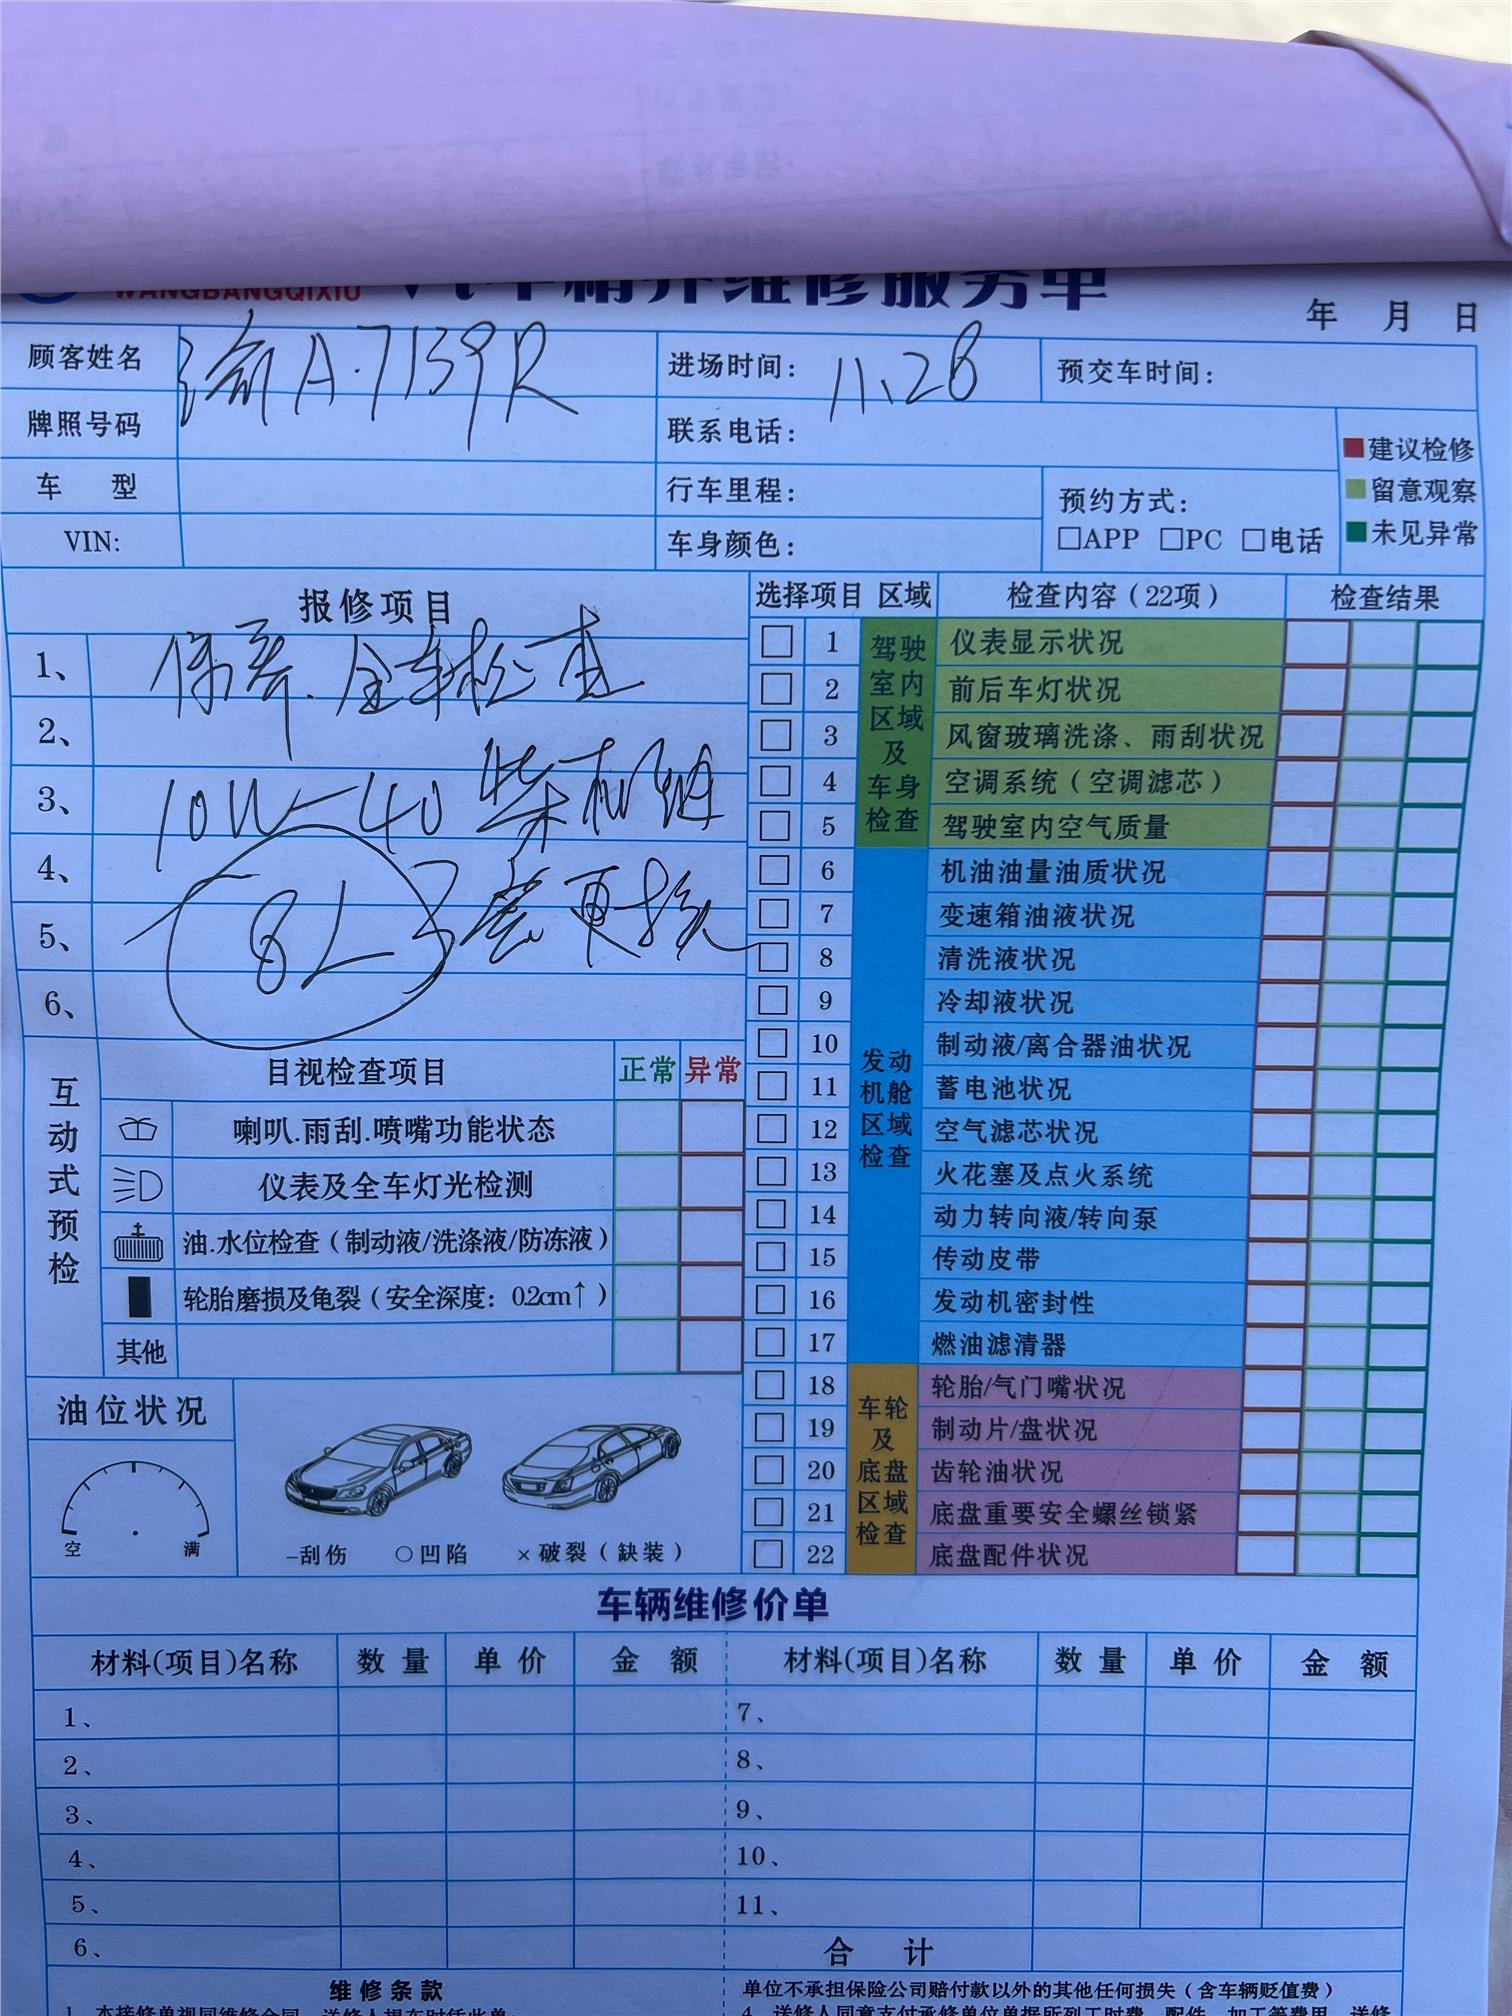 WANGBANGQIXIU 汽车精养维修服务单
年 月 日
顾客姓名 渝A·7139R 进场时间: 11、28 预交车时间:
牌照号码 联系电话:
车 型 行车里程: 预约方式:
VIN: 车身颜色: □APP □PC □电话
建议检修
留意观察
未见异常
报修项目
1、 保养.全车检查
2、
3、 10W-40 柴机油
4、
5、 8L 3套更换
6、
互动式预检
目视检查项目 正常 异常
喇叭.雨刮.喷嘴功能状态
仪表及全车灯光检测
油.水位检查(制动液/洗涤液/防冻液)
轮胎磨损及龟裂(安全深度: 0.2cm↑)
其他
油位状况
空 满
-刮伤 ○凹陷 ×破裂(缺装)
选择项目 区域 检查内容(22项) 检查结果
驾驶室内区域及车身检查
1 仪表显示状况
2 前后车灯状况
3 风窗玻璃洗涤、雨刮状况
4 空调系统(空调滤芯)
5 驾驶室内空气质量
发动机舱区域检查
6 机油油量油质状况
7 变速箱油液状况
8 清洗液状况
9 冷却液状况
10 制动液/离合器油状况
11 蓄电池状况
12 空气滤芯状况
13 火花塞及点火系统
14 动力转向液/转向泵
15 传动皮带
16 发动机密封性
17 燃油滤清器
车轮及底盘区域检查
18 轮胎/气门嘴状况
19 制动片/盘状况
20 齿轮油状况
21 底盘重要安全螺丝锁紧
22 底盘配件状况
车辆维修价单
材料(项目)名称 数量 单价 金额 材料(项目)名称 数量 单价 金额
1、 7、
2、 8、
3、 9、
4、 10、
5、 11、
6、 合计
维修条款
单位不承担保险公司赔付款以外的其他任何损失(含车辆贬值费)